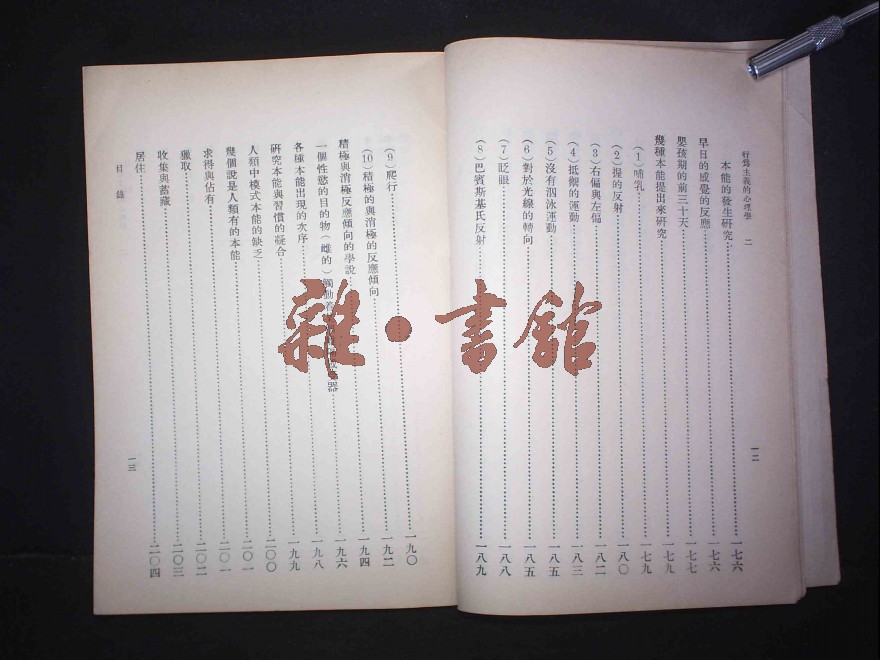 行爲主義的心理學 二
一二
本能的發生研究 一七六
早日的感覺的反應 一七六
嬰孩期的前三十天 一七七
幾種本能提出來研究 一七九
(1)哺乳 一七九
(2)握的反射 一八〇
(3)右偏與左偏 一八二
(4)抵禦的運動 一八三
(5)沒有泅泳運動 一八五
(6)對於光線的轉向 一八五
(7)眨眼 一八八
(8)巴賓斯基氏反射 一八九
(9)爬行 一九〇
(10)積極的與消極的反應傾向 一九二
積極與消極反應傾向的學說 一九四
一個性慾的目的物(雌的)觸動 器 一九六
各種本能出現的次序 一九八
研究本能與習慣的凝合 一九九
人類中模式本能的缺乏 二〇〇
幾個說是人類有的本能 二〇一
求得與佔有 二〇一
獵取 二〇二
收集與蓄藏 二〇三
居住 二〇四
目錄
一三
雜·書館